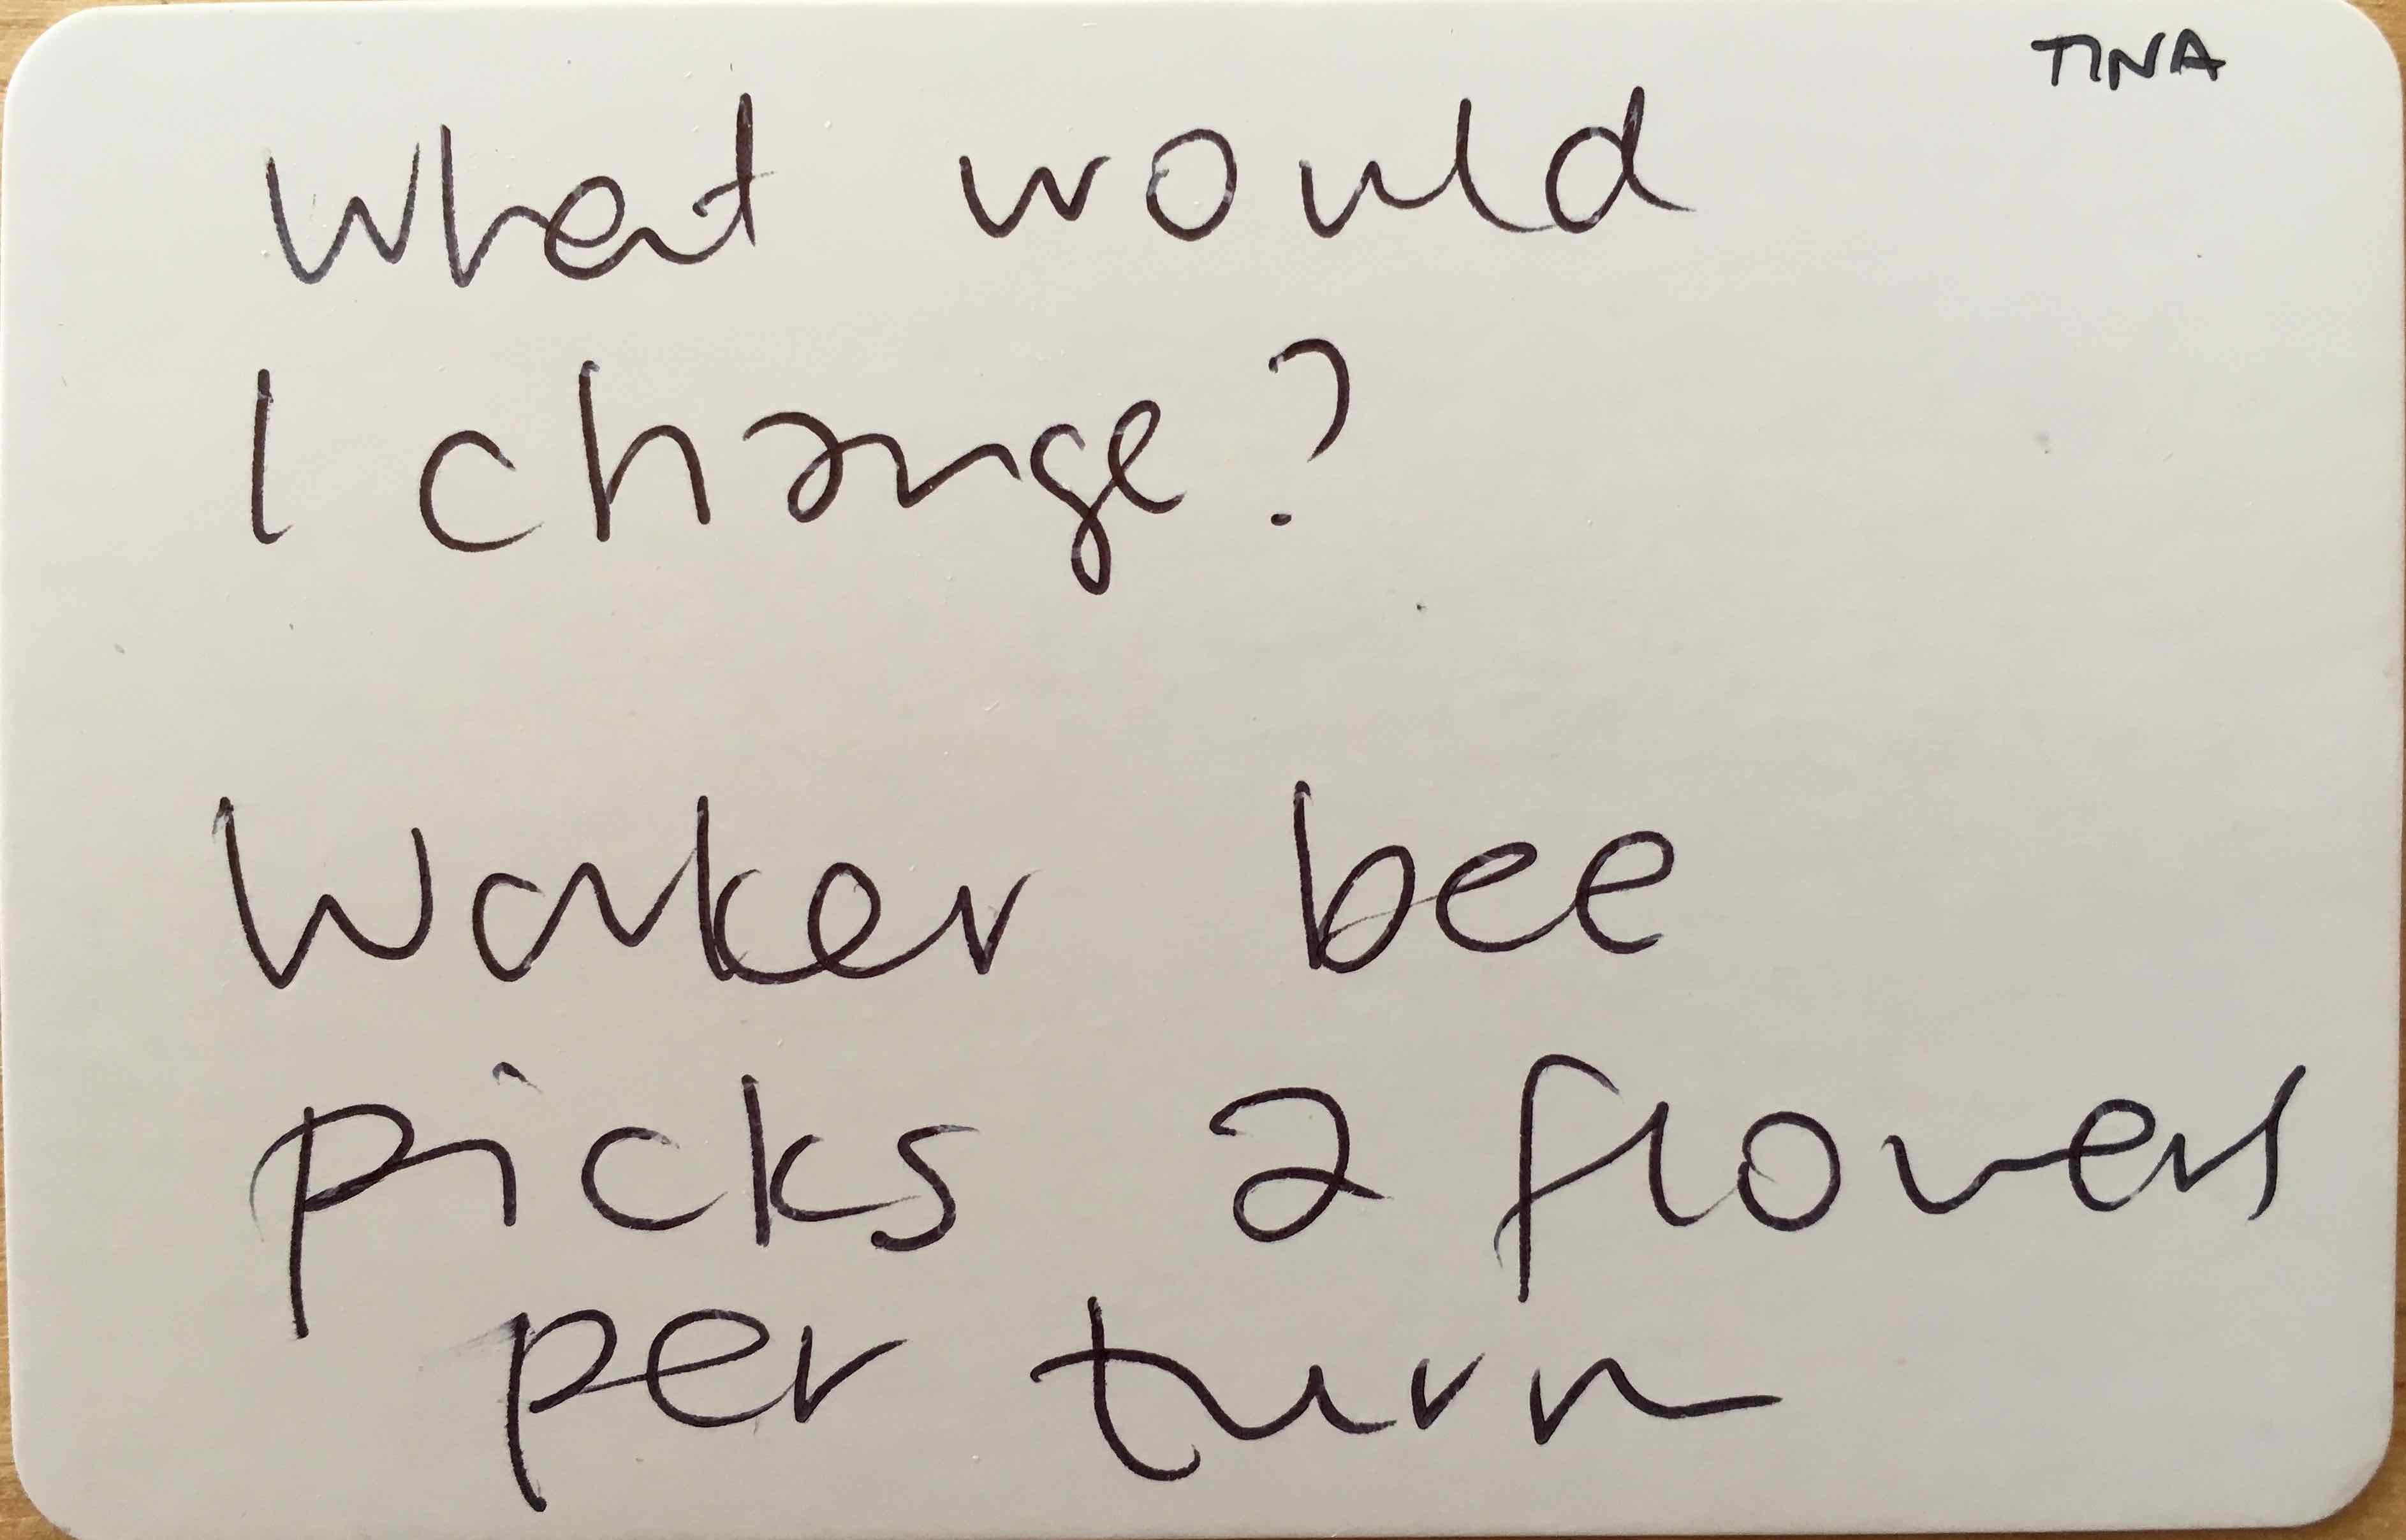 TINA
What would
I change?
Worker bee
picks 2 flowers
per turn